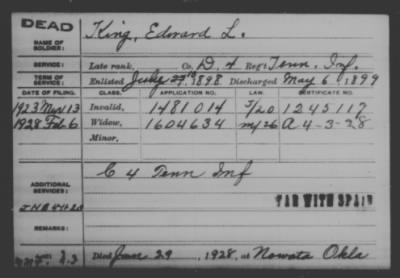 DEAD
NAME OF SOLDIER: King, Edward L.
SERVICE: Late rank, Co. D. 4 Reg't Tenn. Inf.
TERM OF SERVICE: Enlisted July 1898 Discharged May 6, 1899
DATE OF FILING. CLASS. APPLICATION NO. LAW. CERTIFICATE NO.
1923 Mar 13 Invalid, 1481014 5/20 1245117
1928 Feb 6 Widow, 1604634 my 26 A 4-3-28
Minor,
ADDITIONAL SERVICES: C 4 Tenn Inf
WAR WITH SPAIN
REMARKS:
Died June 29, 1928, at Nowata Okla